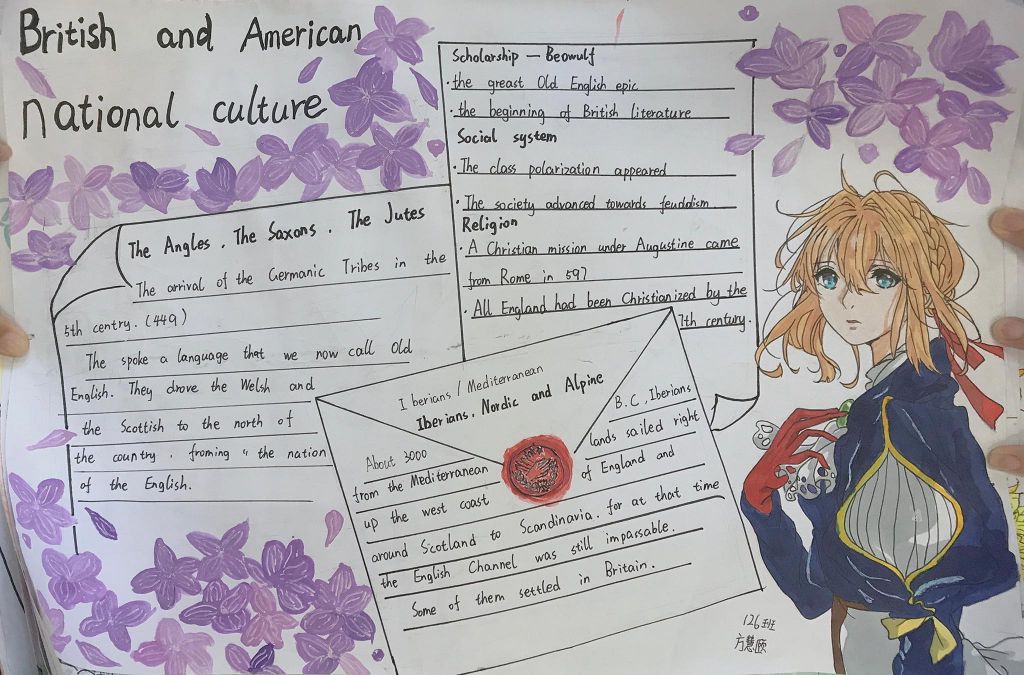 British and American
national culture
The Angles . The Saxons . The Jutes
The arrival of the Germanic Tribes in the
5th centry. (449)
The spoke a language that we now call Old
English. They drove the Welsh and
the Scottish to the north of
the country , froming " the nation
of the English.
Scholarship — Beowulf
· the greast Old English epic
· the beginning of British literature
Social system
· The class polarization appeared
· The society advanced towards feuddism.
Religion
· A Christian mission under Augustine came
from Rome in 597
· All England had been Christianized by the
7th century.
Iberians / Mediterranean
Iberians. Nordic and Alpine
About 3000 B.C, Iberians
from the Mediterranean lands sailed right
up the west coast of England and
around Scotland to Scandinavia. for at that time
the English Channel was still impassable.
Some of them settled in Britain.
126班
方慧颐